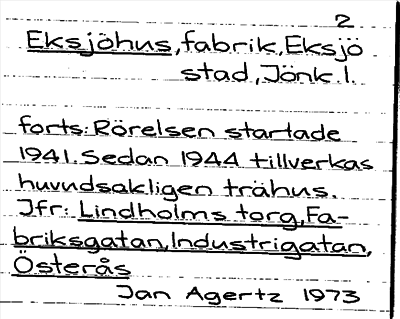 2
Eksjöhus, fabrik, Eksjö
stad, Jönk. l.
forts: Rörelsen startade
1941. Sedan 1944 tillverkas
huvudsakligen trähus.
Jfr: Lindholms torg, Fa-
briksgatan, Industrigatan,
Österås
Jan Agertz 1973